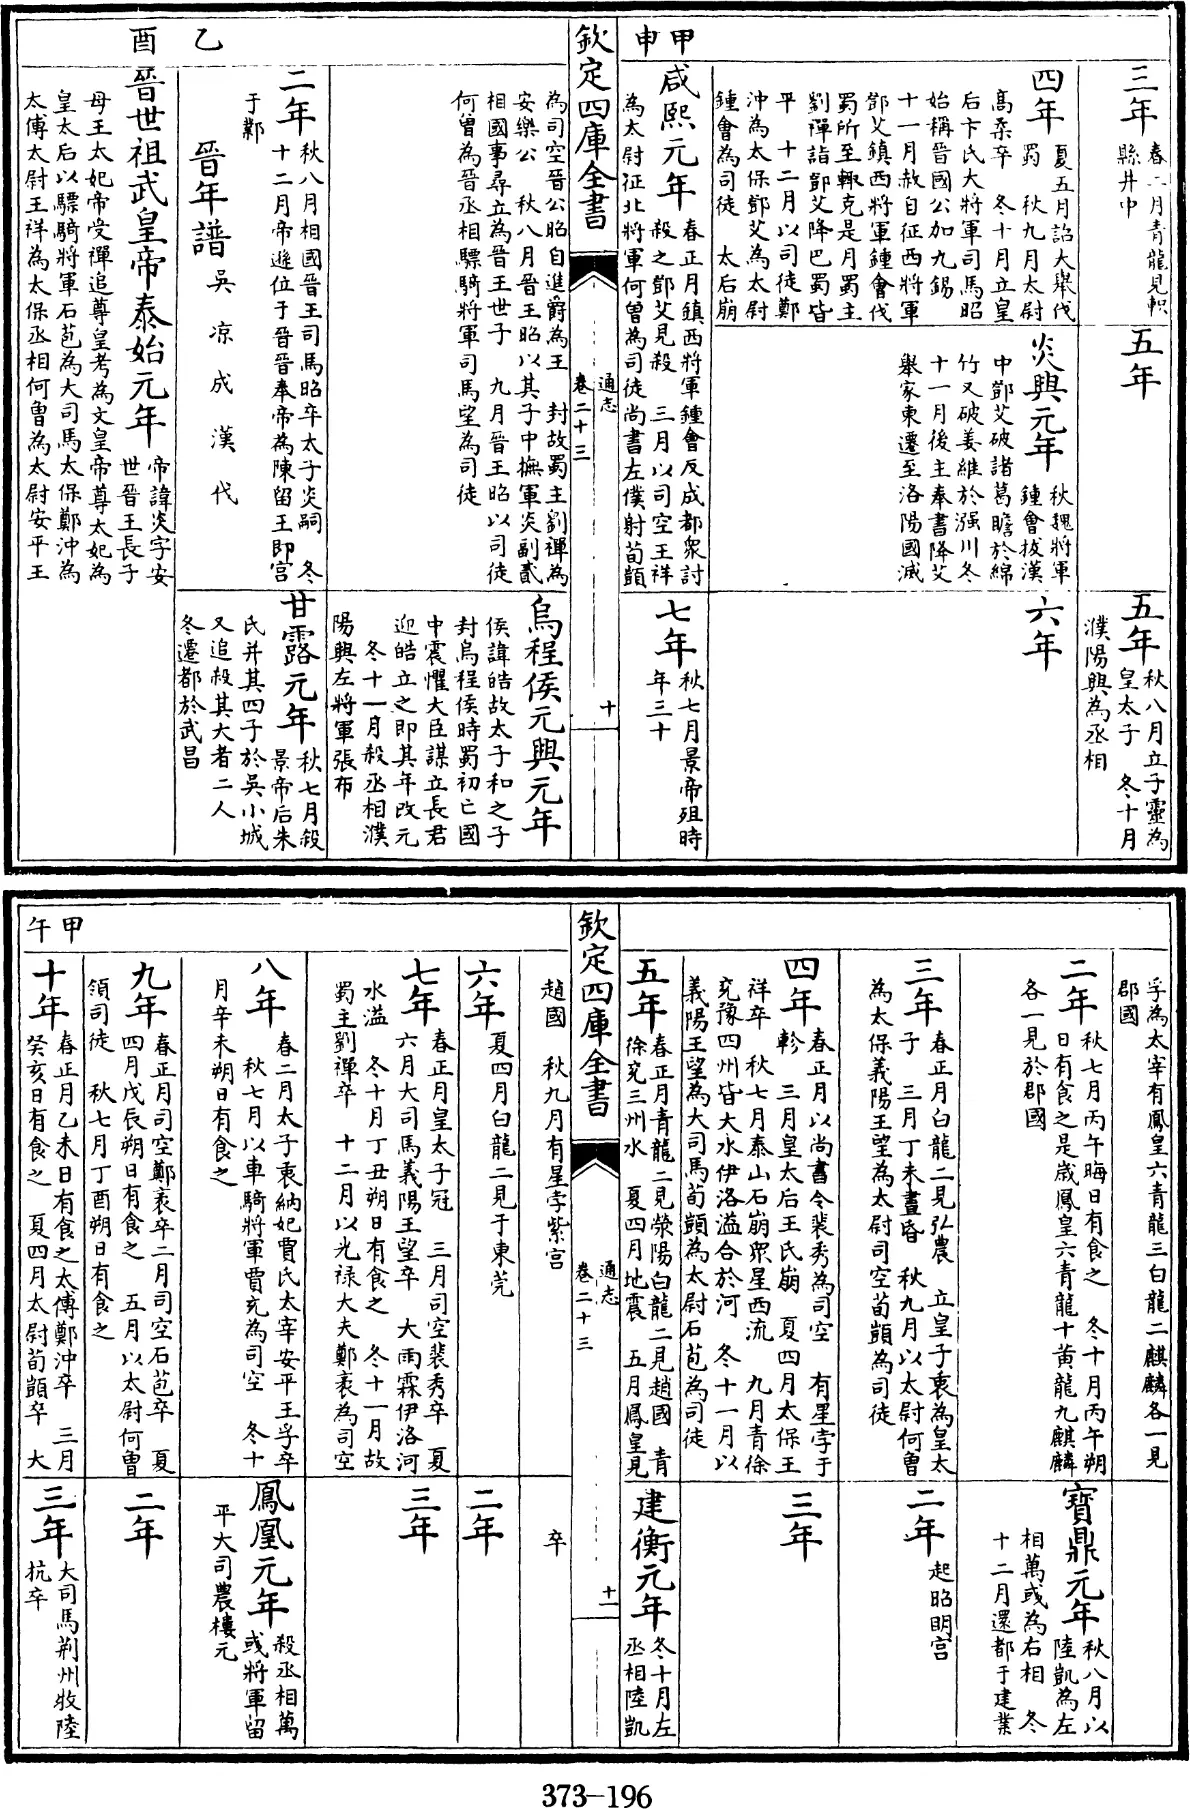 甲申
三年
春二月青龍見軹
縣井中
五年
五年
秋八月立子𩅦為
皇太子 冬十月
濮陽興為丞相
四年
夏五月詔大舉伐
蜀 秋九月太尉
髙柔卒 冬十月立皇
后卞氏大將軍司馬昭
始稱晉國公加九錫
十一月赦自征西將軍
鄧艾鎮西將軍鍾會伐
蜀所至輙克是月蜀主
劉禪詣鄧艾降巴蜀皆
平 十二月以司徒鄭
沖為太保鄧艾為太尉
鍾會為司徒 太后崩
炎興元年
秋魏將軍
鍾會拔漢
中鄧艾破諸葛瞻於綿
竹又破姜維於强川冬
十一月後主奉書降艾
舉家東遷至洛陽國滅
六年
咸熙元年
春正月鎮西將軍鍾會反成都衆討
殺之鄧艾見殺 三月以司空王祥
為太尉征北將軍何曽為司徒尚書左僕射荀顗
七年
秋七月景帝殂時
年三十
欽定四庫全書
通志
卷二十三
十
為司空晉公昭自進爵為王 封故蜀主劉禪為
安樂公 秋八月晉王昭以其子中撫軍炎副貳
相國事尋立為晉王世子 九月晉王昭以司徒
何曽為晉丞相驃騎將軍司馬望為司徒
烏程侯元興元年
侯諱皓故太子和之子
封烏程侯時蜀初亡國
中震懼大臣謀立長君
迎皓立之即其年改元
冬十一月殺丞相濮
陽興左將軍張布
乙酉
二年
秋八月相國晉王司馬昭卒太子炎嗣 冬
十二月帝遜位于晉晉奉帝為陳留王即宫
于鄴
晉年譜
吳 凉 成 漢 代
甘露元年
秋七月殺
景帝后朱
氏并其四子於吳小城
又追殺其大者二人
冬遷都於武昌
晉世祖武皇帝泰始元年
帝諱炎字安
世晉王長子
母王太妃帝受禪追尊皇考為文皇帝尊太妃為
皇太后以驃騎將軍石苞為大司馬太保鄭沖為
太傅太尉王祥為太保丞相何曽為太尉安平王
孚為太宰有鳳皇六青龍三白龍二麒麟各一見
郡國
二年
秋七月丙午晦日有食之 冬十月丙午朔
日有食之是歲鳳皇六青龍十黄龍九麒麟
各一見於郡國
寶鼎元年
秋八月以
陸凱為左
相萬彧為右相 冬
十二月還都于建業
三年
春正月白龍二見弘農 立皇子衷為皇太
子 三月丁未晝昏 秋九月以太尉何曽
為太保義陽王望為太尉司空荀顗為司徒
二年
起昭明宫
四年
春正月以尚書令裴秀為司空 有星孛于
軫 三月皇太后王氏崩 夏四月太保王
祥卒 秋七月泰山石崩衆星西流 九月青徐
兖豫四州皆大水伊洛溢合於河 冬十一月以
義陽王望為大司馬荀顗為太尉石苞為司徒
三年
五年
春正月青龍二見滎陽白龍二見趙國 青
徐兖三州水 夏四月地震 五月鳳皇見
建衡元年
冬十月左
丞相陸凱
欽定四庫全書
通志
卷二十三
十一
趙國 秋九月有星孛紫宫
卒
六年
夏四月白龍二見于東莞
二年
七年
春正月皇太子冠 三月司空裴秀卒 夏
六月大司馬義陽王望卒 大雨霖伊洛河
水溢 冬十月丁丑朔日有食之 冬十一月故
蜀主劉禪卒 十二月以光禄大夫鄭袤為司空
三年
八年
春二月太子衷納妃賈氏太宰安平王孚卒
秋七月以車騎將軍賈充為司空 冬十
月辛未朔日有食之
鳳凰元年
殺丞相萬
彧將軍留
平大司農樓元
九年
春正月司空鄭袤卒二月司空石苞卒 夏
四月戊辰朔日有食之 五月以太尉何曽
領司徒 秋七月丁酉朔日有食之
二年
甲午
十年
春正月乙未日有食之太傅鄭沖卒 三月
癸亥日有食之 夏四月太尉荀顗卒 大
三年
大司馬荆州牧陸
抗卒
373-196